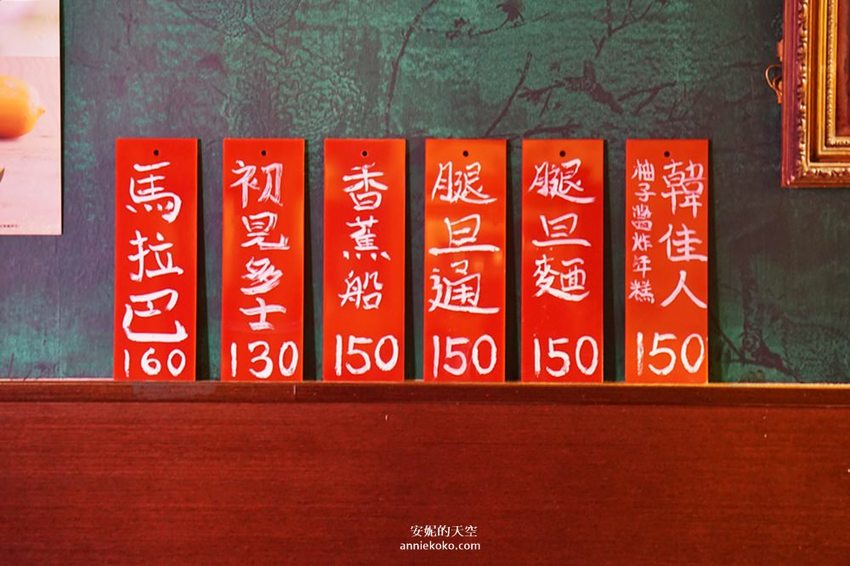 馬拉巴
160
初見多士
130
香蕉船
150
腿旦通
150
腿旦麵
150
韓佳人
柚子醬炸年糕
150
安妮的天空
anniekoko.com